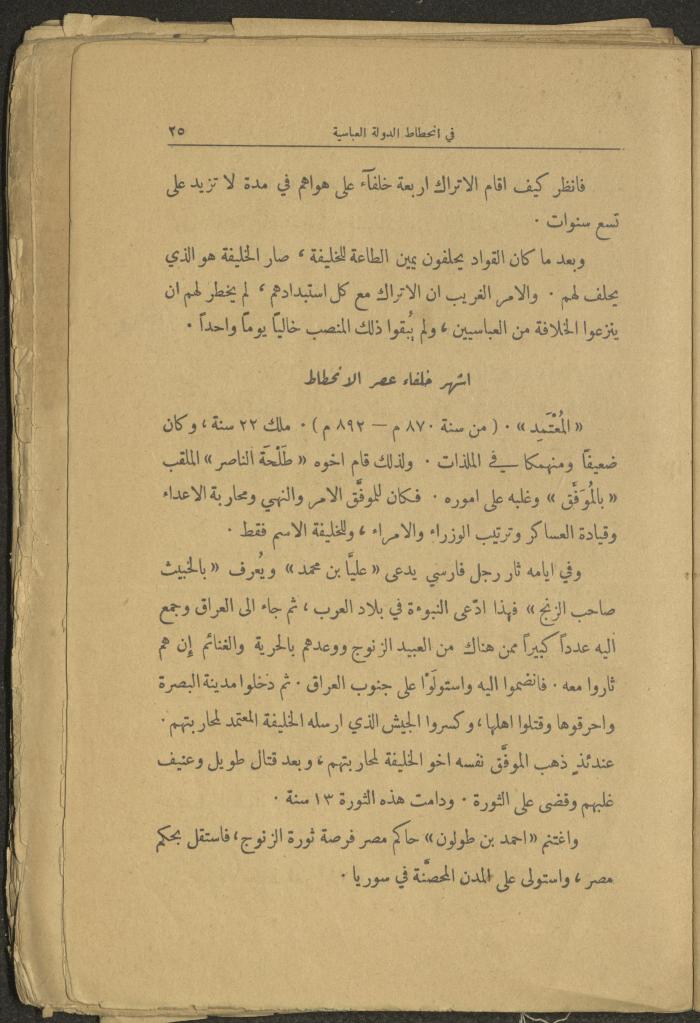 في انحطاط الدولة العباسية ٢٥
فانظر كيف اقام الاتراك اربعة خلفآء على هواهم في مدة لا تزيد على
تسع سنوات ٠
وبعد ما كان القواد يحلفون يمين الطاعة للخليفة ، صار الخليفة هو الذي
يحلف لهم ٠ والامر الغريب ان الاتراك مع كل استبدادهم ، لم يخطر لهم ان
ينزعوا الخلافة من العباسيين ، ولم يُبقوا ذلك المنصب خالياً يوماً واحداً ٠
اشهر خلفاء عصر الانحطاط
« المُعْتَمِد » ٠ ( من سنة ٨٧٠ م — ٨٩٢ م ) ٠ ملك ٢٢ سنة ، وكان
ضعيفاً ومنهمكا في الملذات ٠ ولذلك قام اخوه « طَلْحَة الناصر » الملقب
« بالمُوَفَّق » وغلبه على اموره ٠ فكان للموفَّق الامر والنهي ومحاربة الاعداء
وقيادة العساكر وترتيب الوزراء والامراء ، وللخليفة الاسم فقط ٠
وفي ايامه ثار رجل فارسي يدعى « عليَّا بن محمد » ويُعرف « بالخبيث
صاحب الزنج » فهذا ادّعى النبوءة في بلاد العرب ، ثم جاء الى العراق وجمع
اليه عدداً كبيراً ممن هناك من العبيد الزنوج ووعدهم بالحرية والغنائم إن هم
ثاروا معه ٠ فانضموا اليه واستولَوْا على جنوب العراق ٠ ثم دخلوا مدينة البصرة
واحرقوها وقتلوا اهلها ، وكسروا الجيش الذي ارسله الخليفة المعتمد لمحاربتهم ٠
عندئذٍ ذهب الموفَّق نفسه اخو الخليفة لمحاربتهم ، وبعد قتال طويل وعنيف
غلبهم وقضى على الثورة ٠ ودامت هذه الثورة ١٣ سنة ٠
واغتنم « احمد بن طولون » حاكم مصر فرصة ثورة الزنوج ، فاستقل بحكم
مصر ، واستولى على المدن المحصنَّة في سوريا ٠